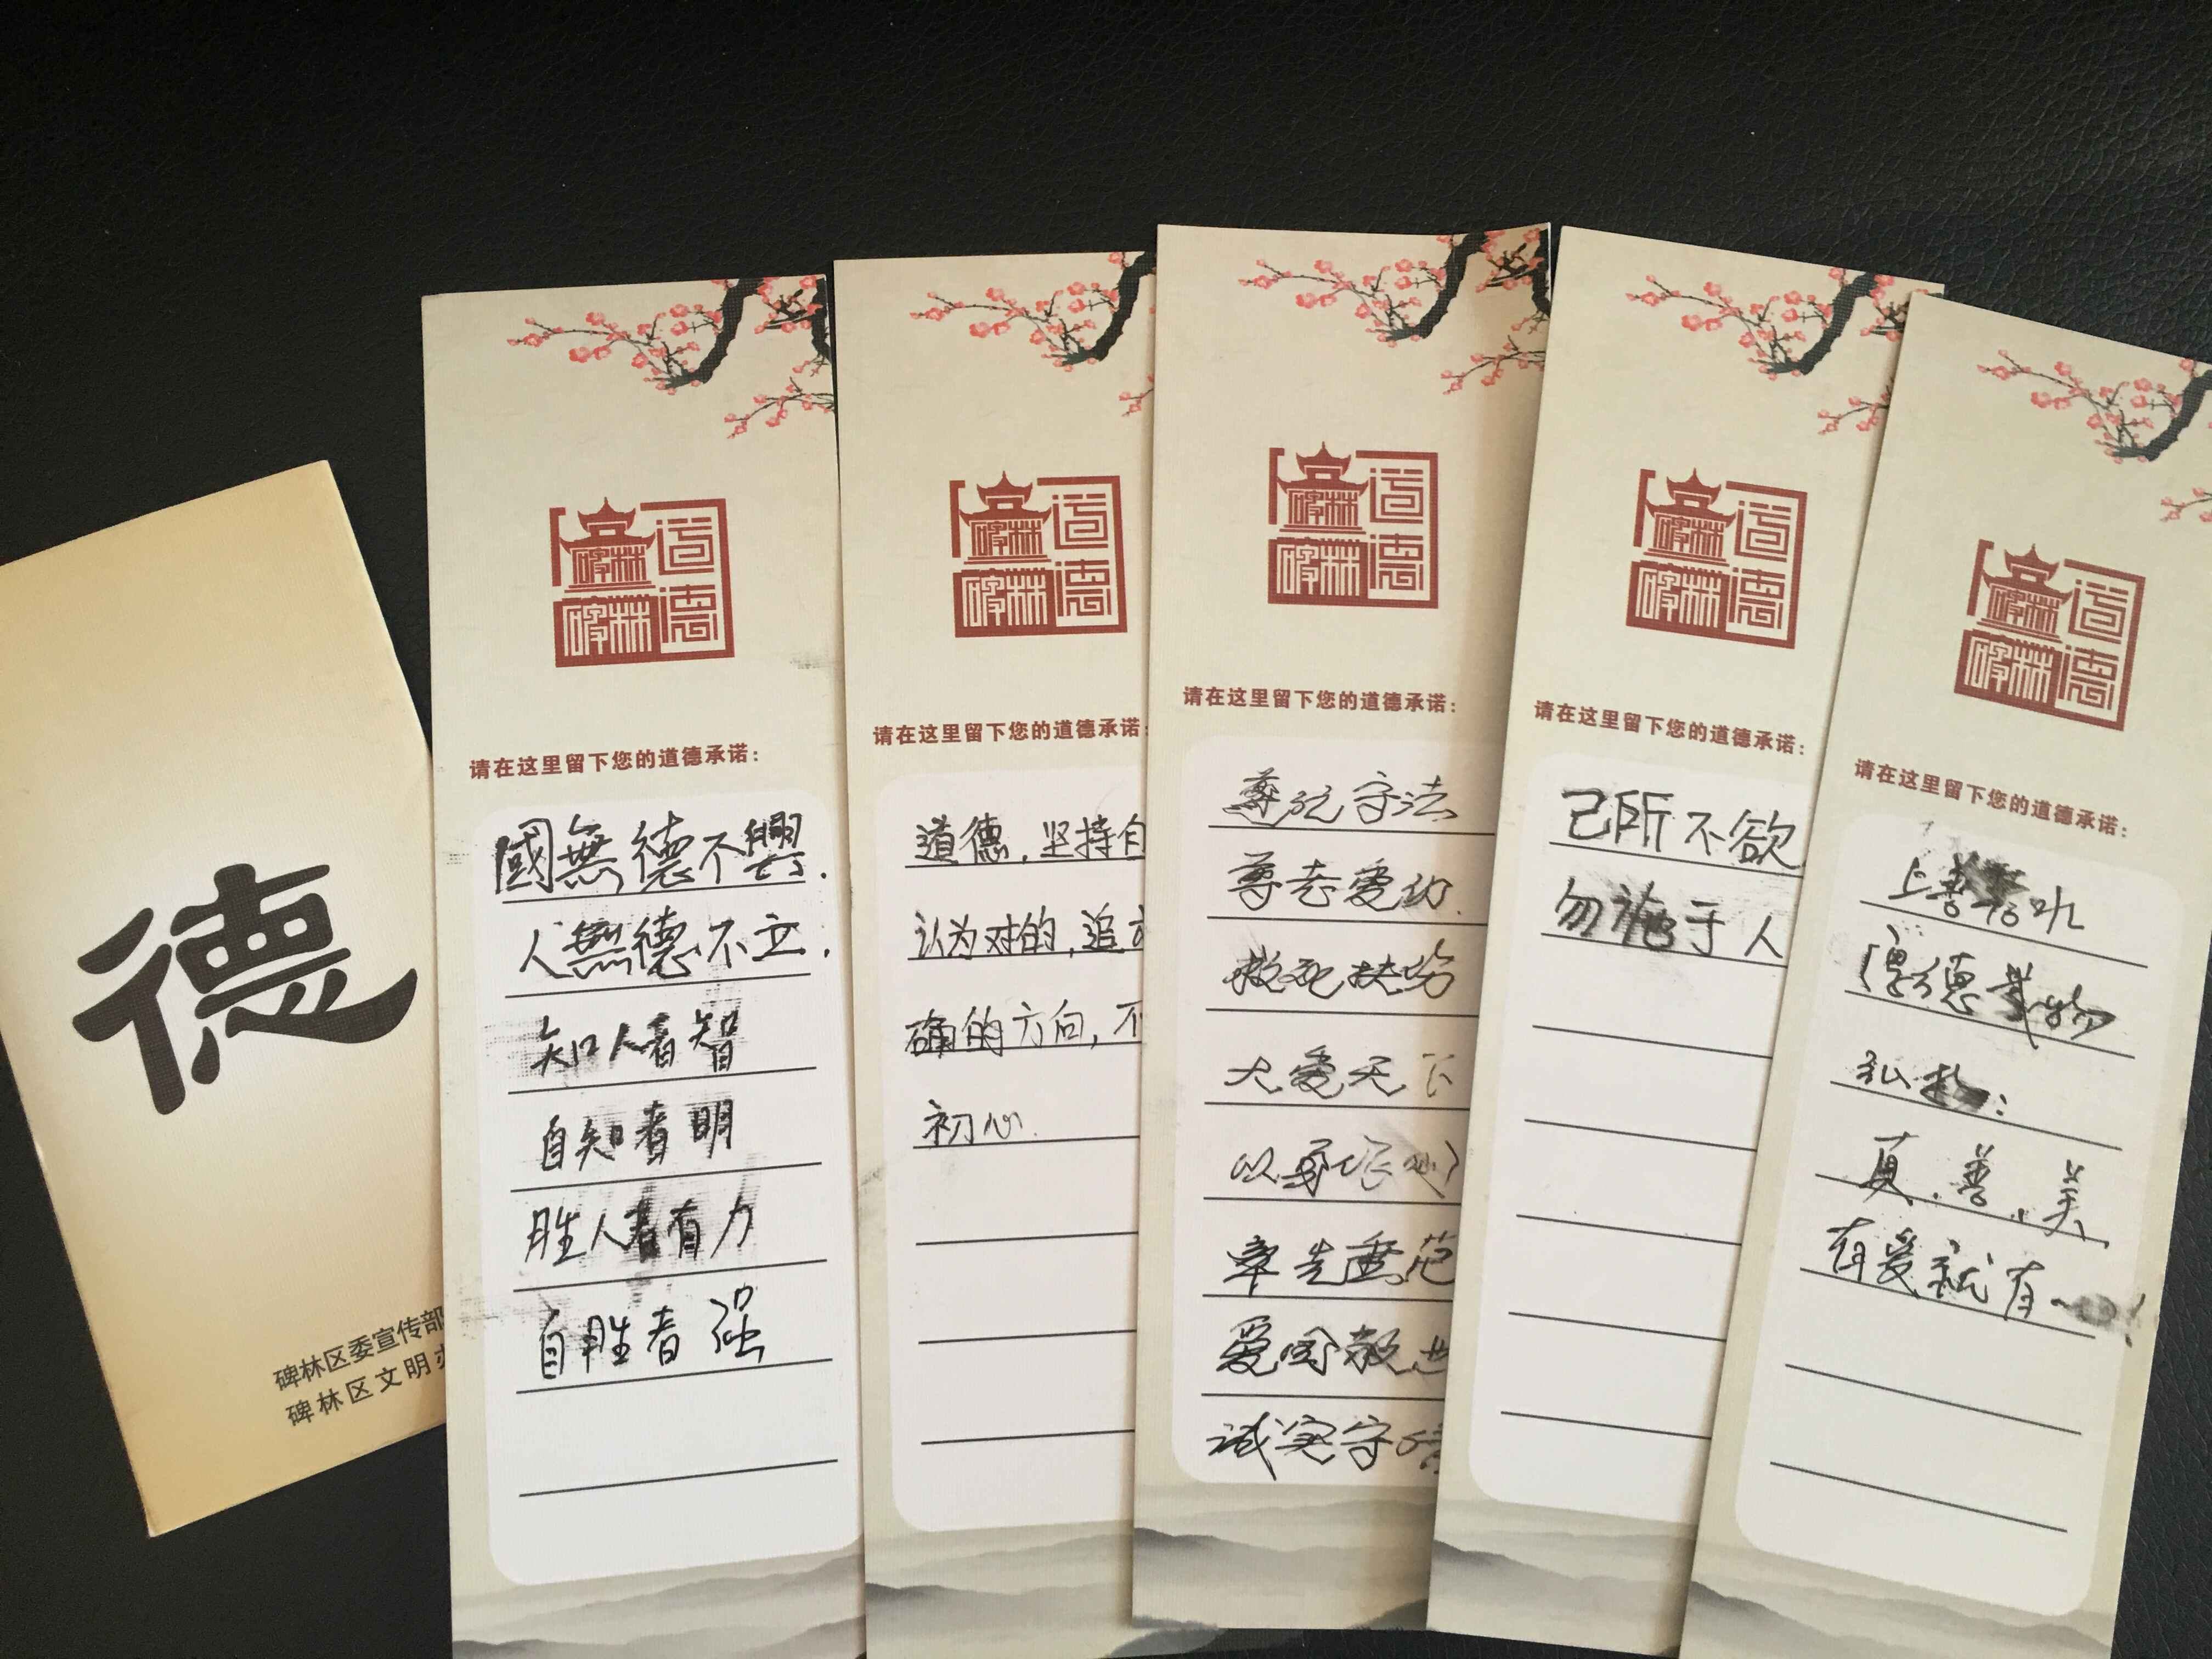 德
碑林区委宣传部
碑林区文明
碑林
碑林
道德
请在这里留下您的道德承诺：
國無德不興.
人無德不立.
知人者智
自知者明
胜人者有力
自胜者强
碑林
碑林
道德
请在这里留下您的道德承诺：
道德，坚持自
认为对的，追
确的方向，不
初心.
碑林
碑林
道德
请在这里留下您的道德承诺：
守法
尊老爱幼.
救死扶伤
大爱天下
以
率先垂范
爱国敬业
诚实守信
碑林
碑林
道德
请在这里留下您的道德承诺：
己所不欲
勿施于人
碑林
碑林
道德
请在这里留下您的道德承诺：
上善若水
厚德载物
弘扬：
真、善、美
有爱就有